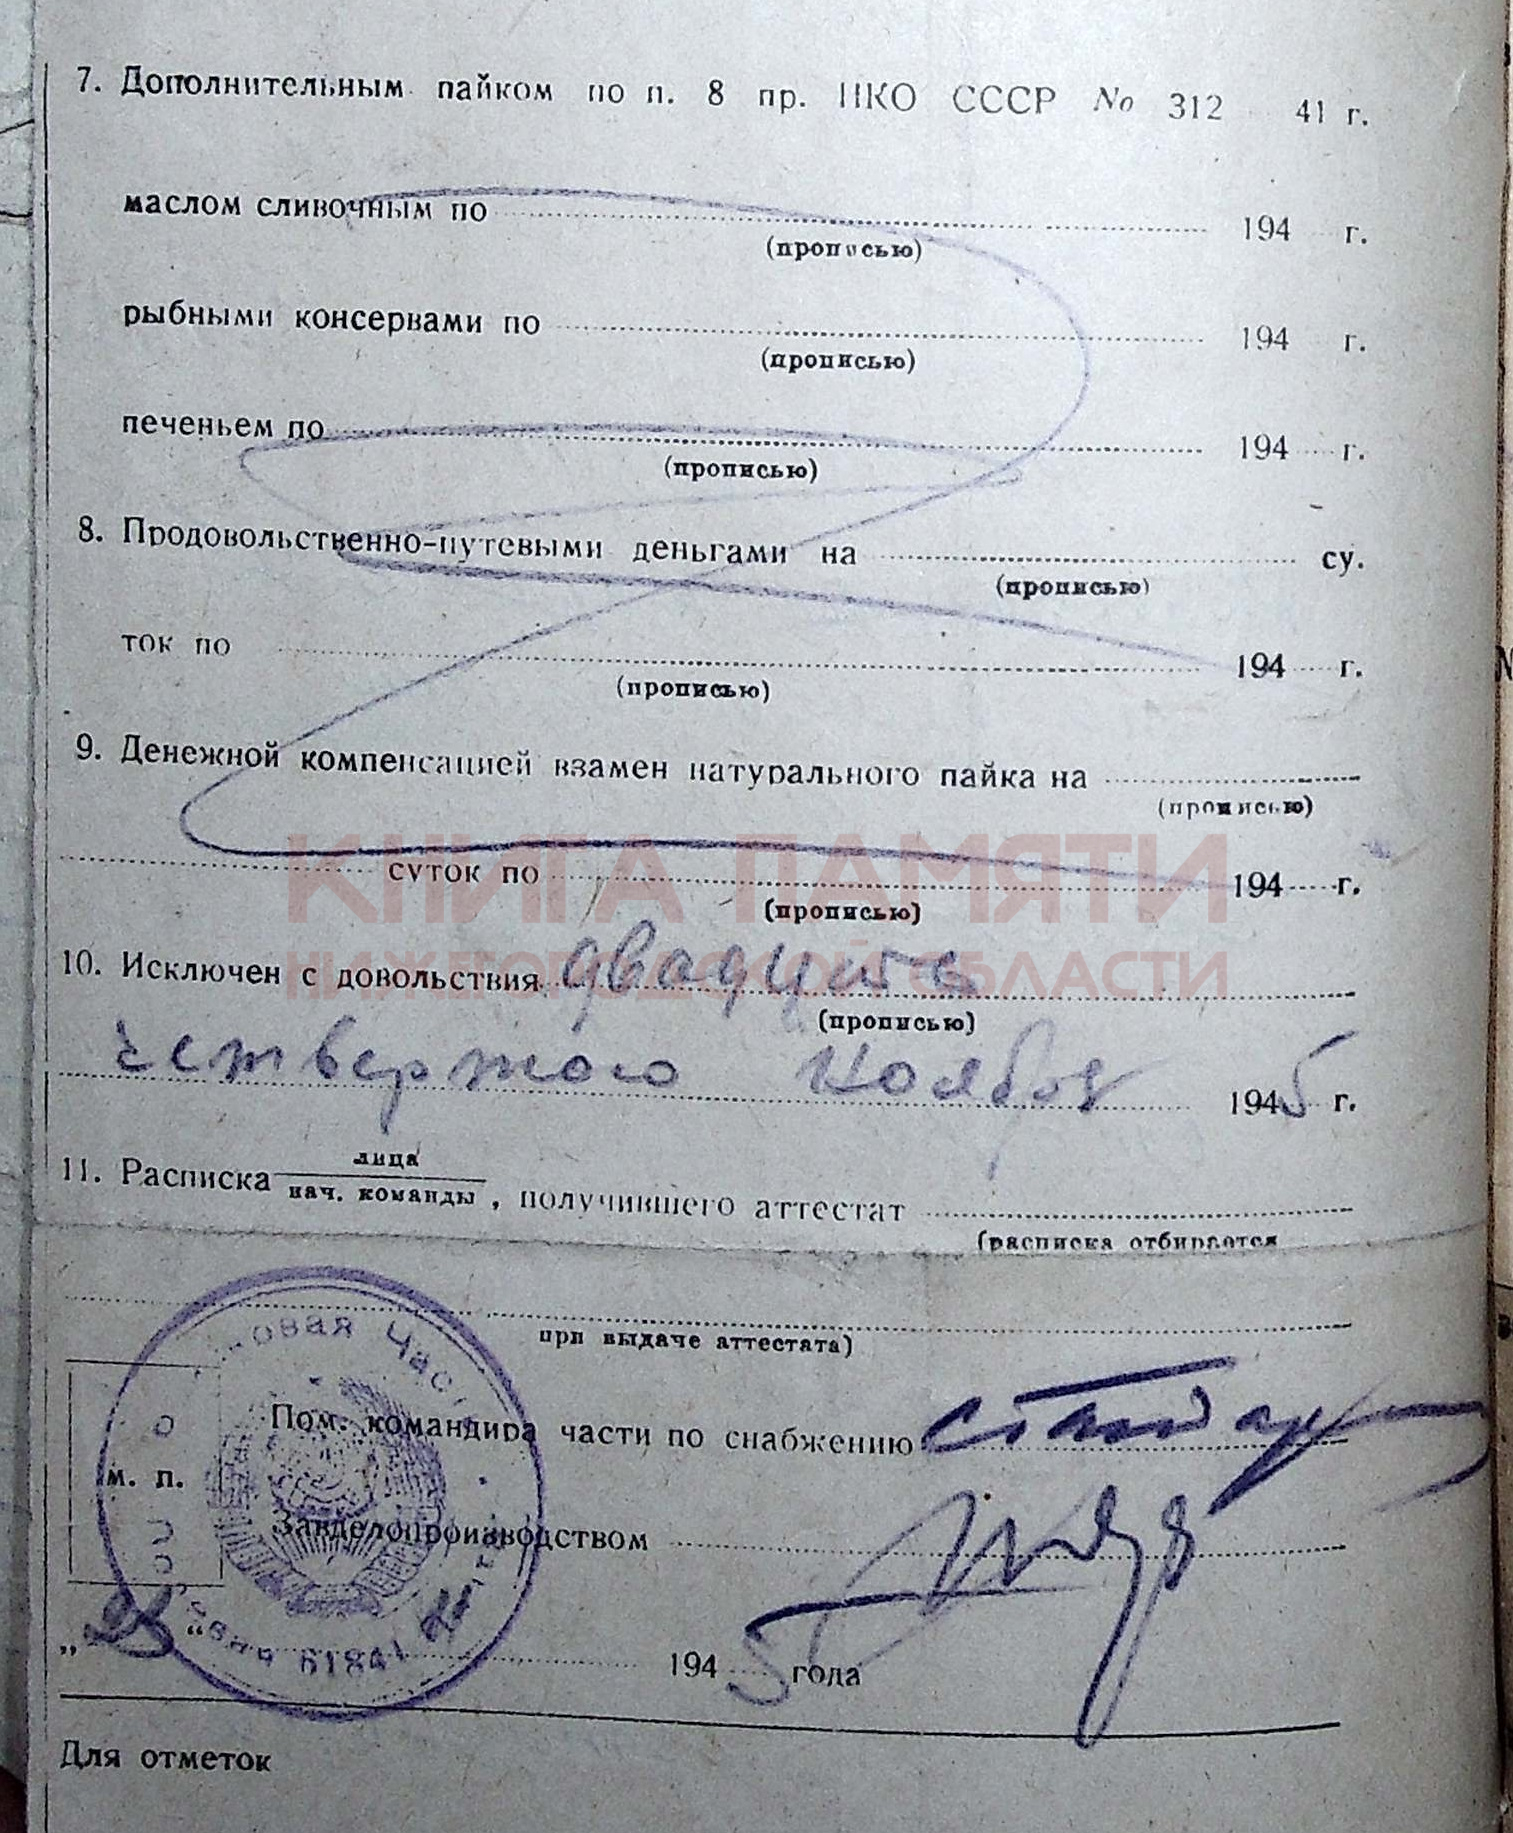 7. Дополнительным пайком по п. 8 пр. НКО СССР № 312 41 г.
маслом сливочным по 194 г.
(прописью)
рыбными консервами по 194 г.
(прописью)
печеньем по 194 г.
(прописью)
8. Продовольственно-путевыми деньгами на су.
(прописью)
ток по 194 г.
(прописью)
9. Денежной компенсацией взамен натурального пайка на
(прописью)
КНИГА ПАМЯТИ
суток по 194 г.
(прописью)
НИЖЕГОРОДСКОЙ ОБЛАСТИ
10. Исключен с довольствия двадцать
(прописью)
четвертого ноября 1945 г.
11. Расписка лица
нач. команды, получившего аттестат
(расписка отбирается
при выдаче аттестата)
Пом. командира части по снабжению
м. п.
Завделопроизводством
„23“ 1945 года
овая Часть 61841
Для отметок